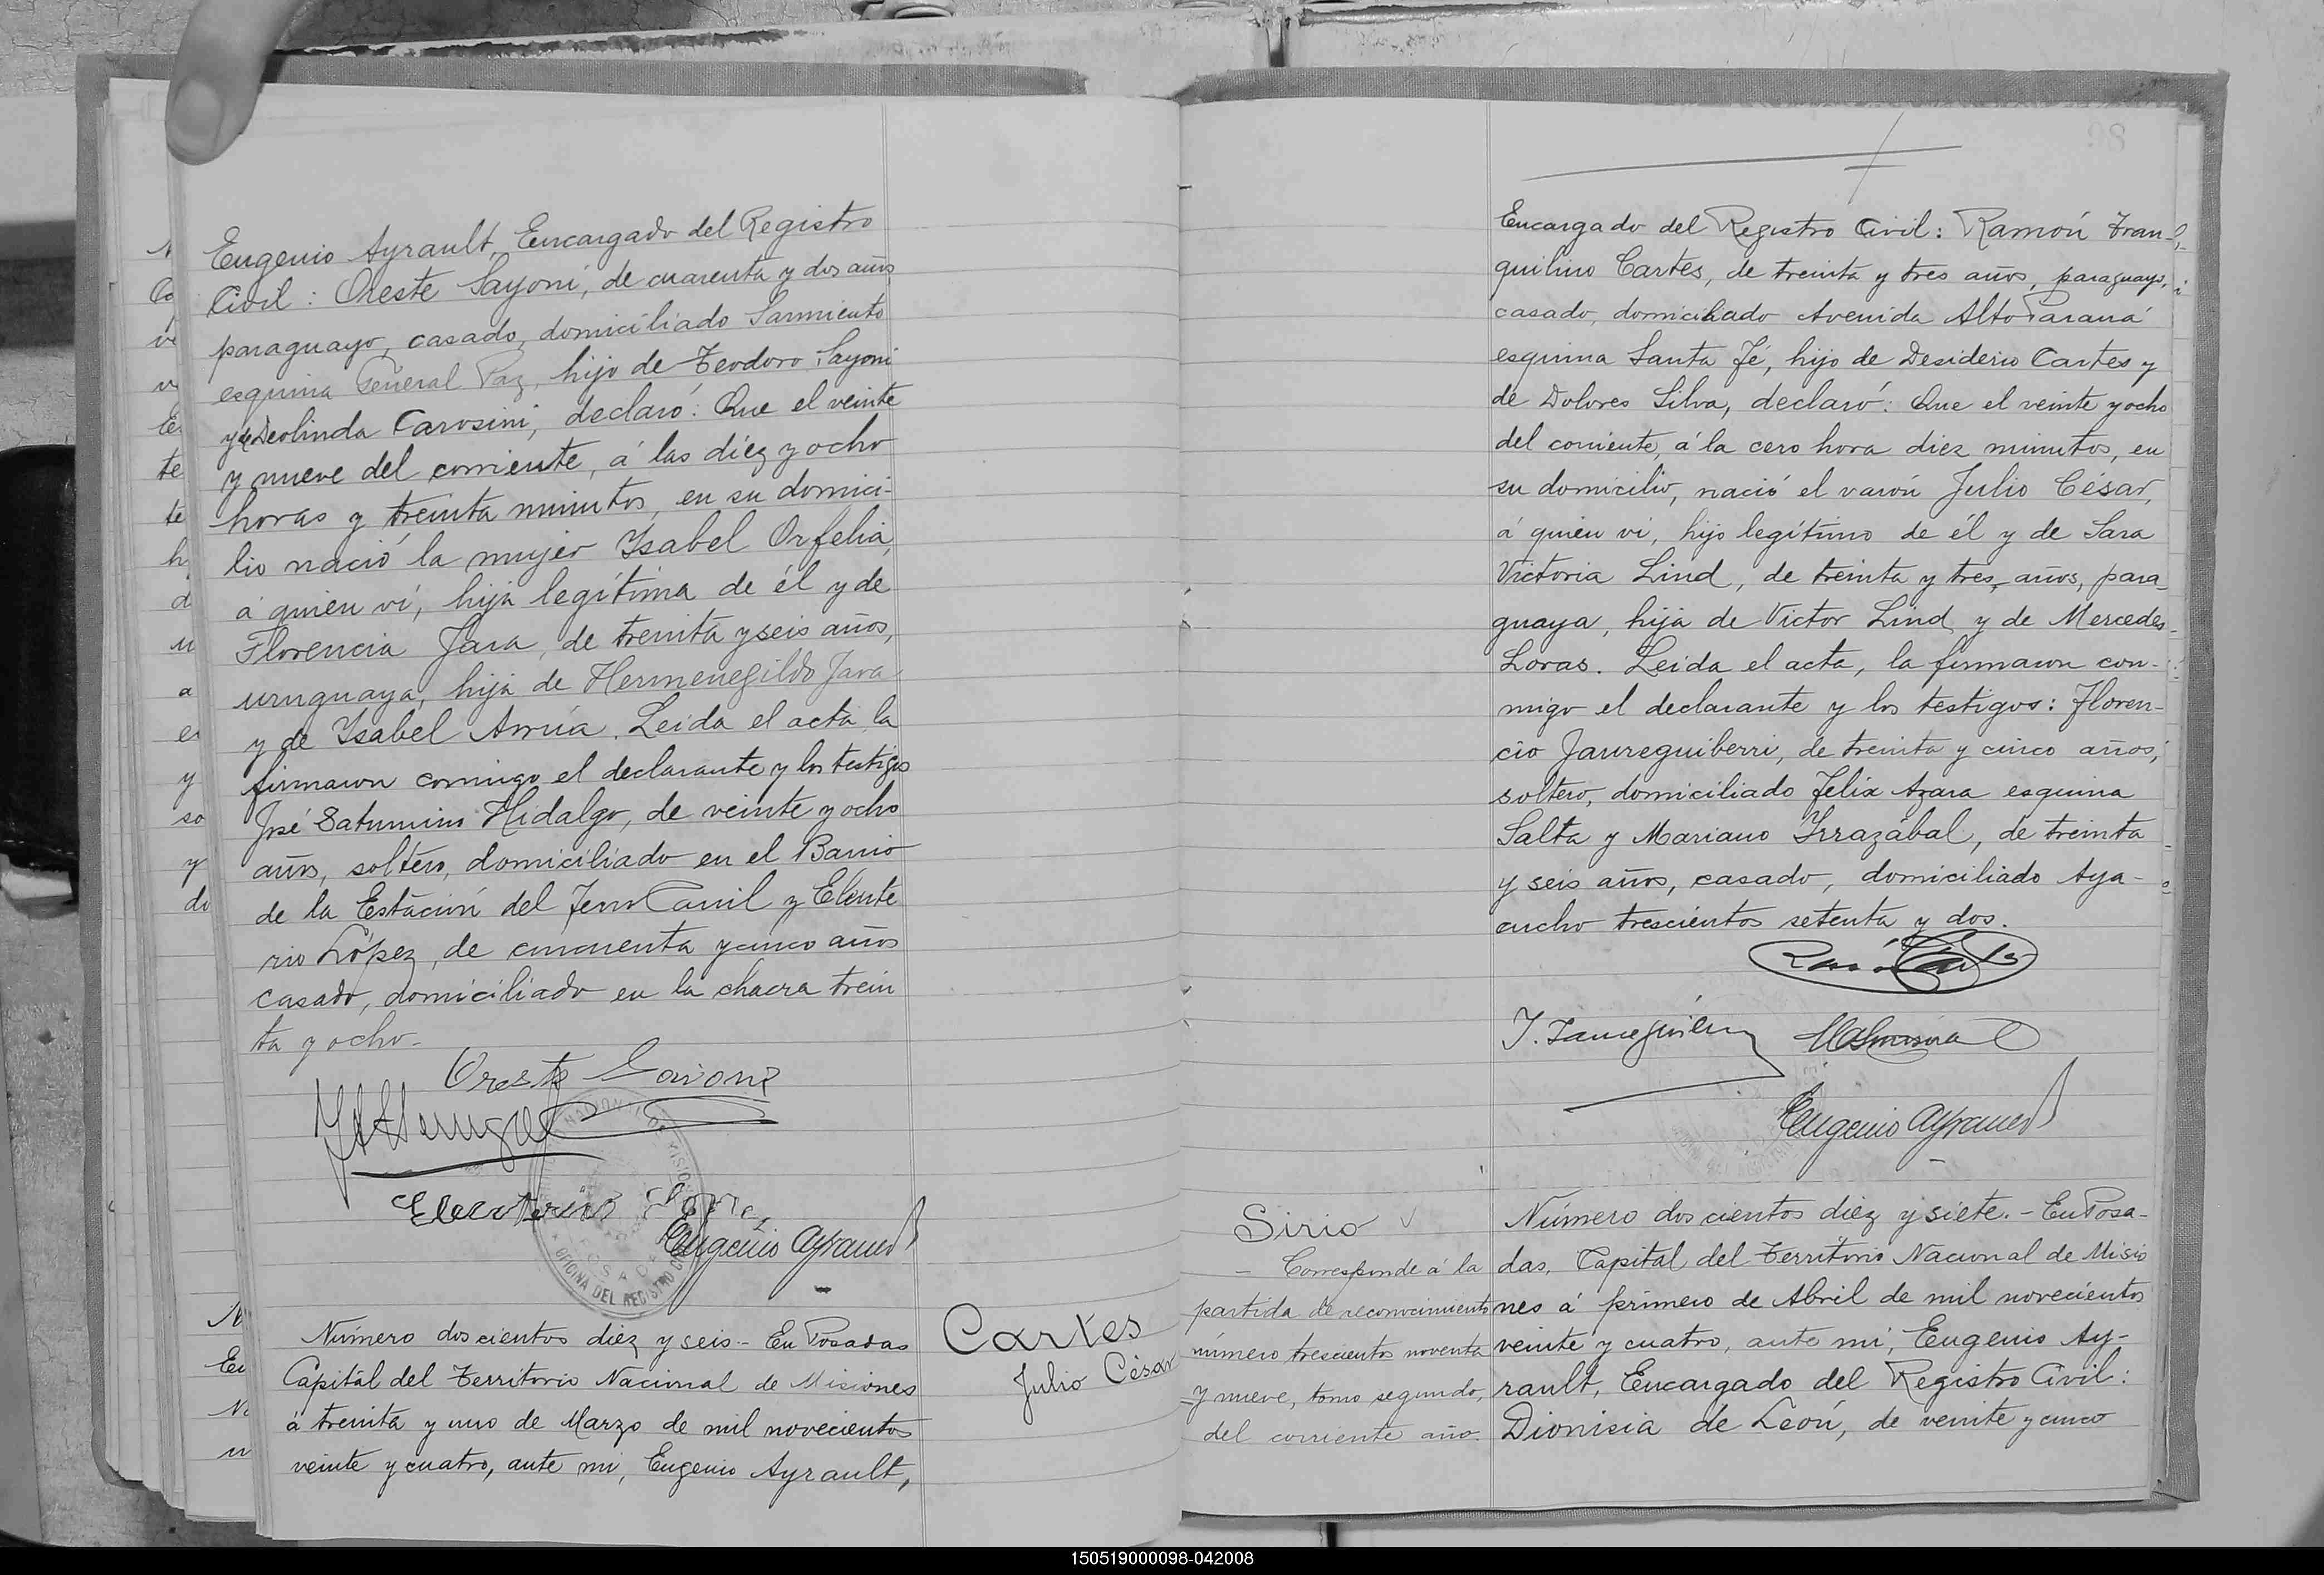 Eugenio Ayrault, Encargado del Registro
Civil: Oreste Sayoni, de cuarenta y dos años
paraguayo, casado, domiciliado Sarmiento
esquina General Paz, hijo de Teodoro Sayoni
y de Deolinda Carosini, declaró: Que el veinte
y nueve del corriente, á las diez y ocho
horas y treinta minutos, en su domici-
lio nació la mujer Isabel Orfelia,
á quien vi, hija legítima de él y de
Florencia Jara, de treinta y seis años,
uruguaya, hija de Hermenegildo Jara
y de Isabel Arrúa. Leida el acta, la
firmaron conmigo el declarante y los testigos
José Saturnino Hidalgo, de veinte y ocho
años, soltero, domiciliado en el Barrio
de la Estación del Ferro Carril y Eleute
rio López, de cincuenta y cinco años
casado, domiciliado en la chacra trein
ta y ocho.-
Oreste Sayoni
Eleuterio López
Eugenio Ayrault
OFICINA DEL REGISTRO
Cartes
Julio César
Número dos cientos diez y seis.- En Posadas
Capital del Territorio Nacional de Misiones
á treinta y uno de Marzo de mil novecientos
veinte y cuatro, ante mi, Eugenio Ayrault,
98
Encargado del Registro Civil: Ramón Tran-
quilino Cartes, de treinta y tres años, paraguayo,
casado, domiciliado Avenida Alto Paraná
esquina Santa Fé, hijo de Desiderio Cartes y
de Dolores Silva, declaró: Que el veinte y ocho
del corriente, á la cero hora diez minutos, en
su domicilio, nació el varón Julio César,
á quien vi, hijo legítimo de él y de Sara
Victoria Lind, de treinta y tres años, para_
guaya, hija de Victor Lind y de Mercedes
Loras. Leida el acta, la firmaron con-
migo el declarante y los testigos: Floren-
cio Jaureguiberri, de treinta y cinco años,
soltero, domiciliado Felix Azara esquina
Salta y Mariano Irrazábal, de treinta
y seis años, casado, domiciliado Aya-
cucho trescientos setenta y dos.
Eugenio Ayrault
Sirio
- Corresponde á la
partida de reconocimiento
número trescientos noventa
y nueve, tomo segundo,
del corriente año.
Número dos cientos diez y siete.- En Posa-
das, Capital del Territorio Nacional de Misio
nes á primero de Abril de mil novecientos
veinte y cuatro, ante mi, Eugenio Ay-
rault, Encargado del Registro Civil:
Dionisia de León, de veinte y cinco
150519000098-042008